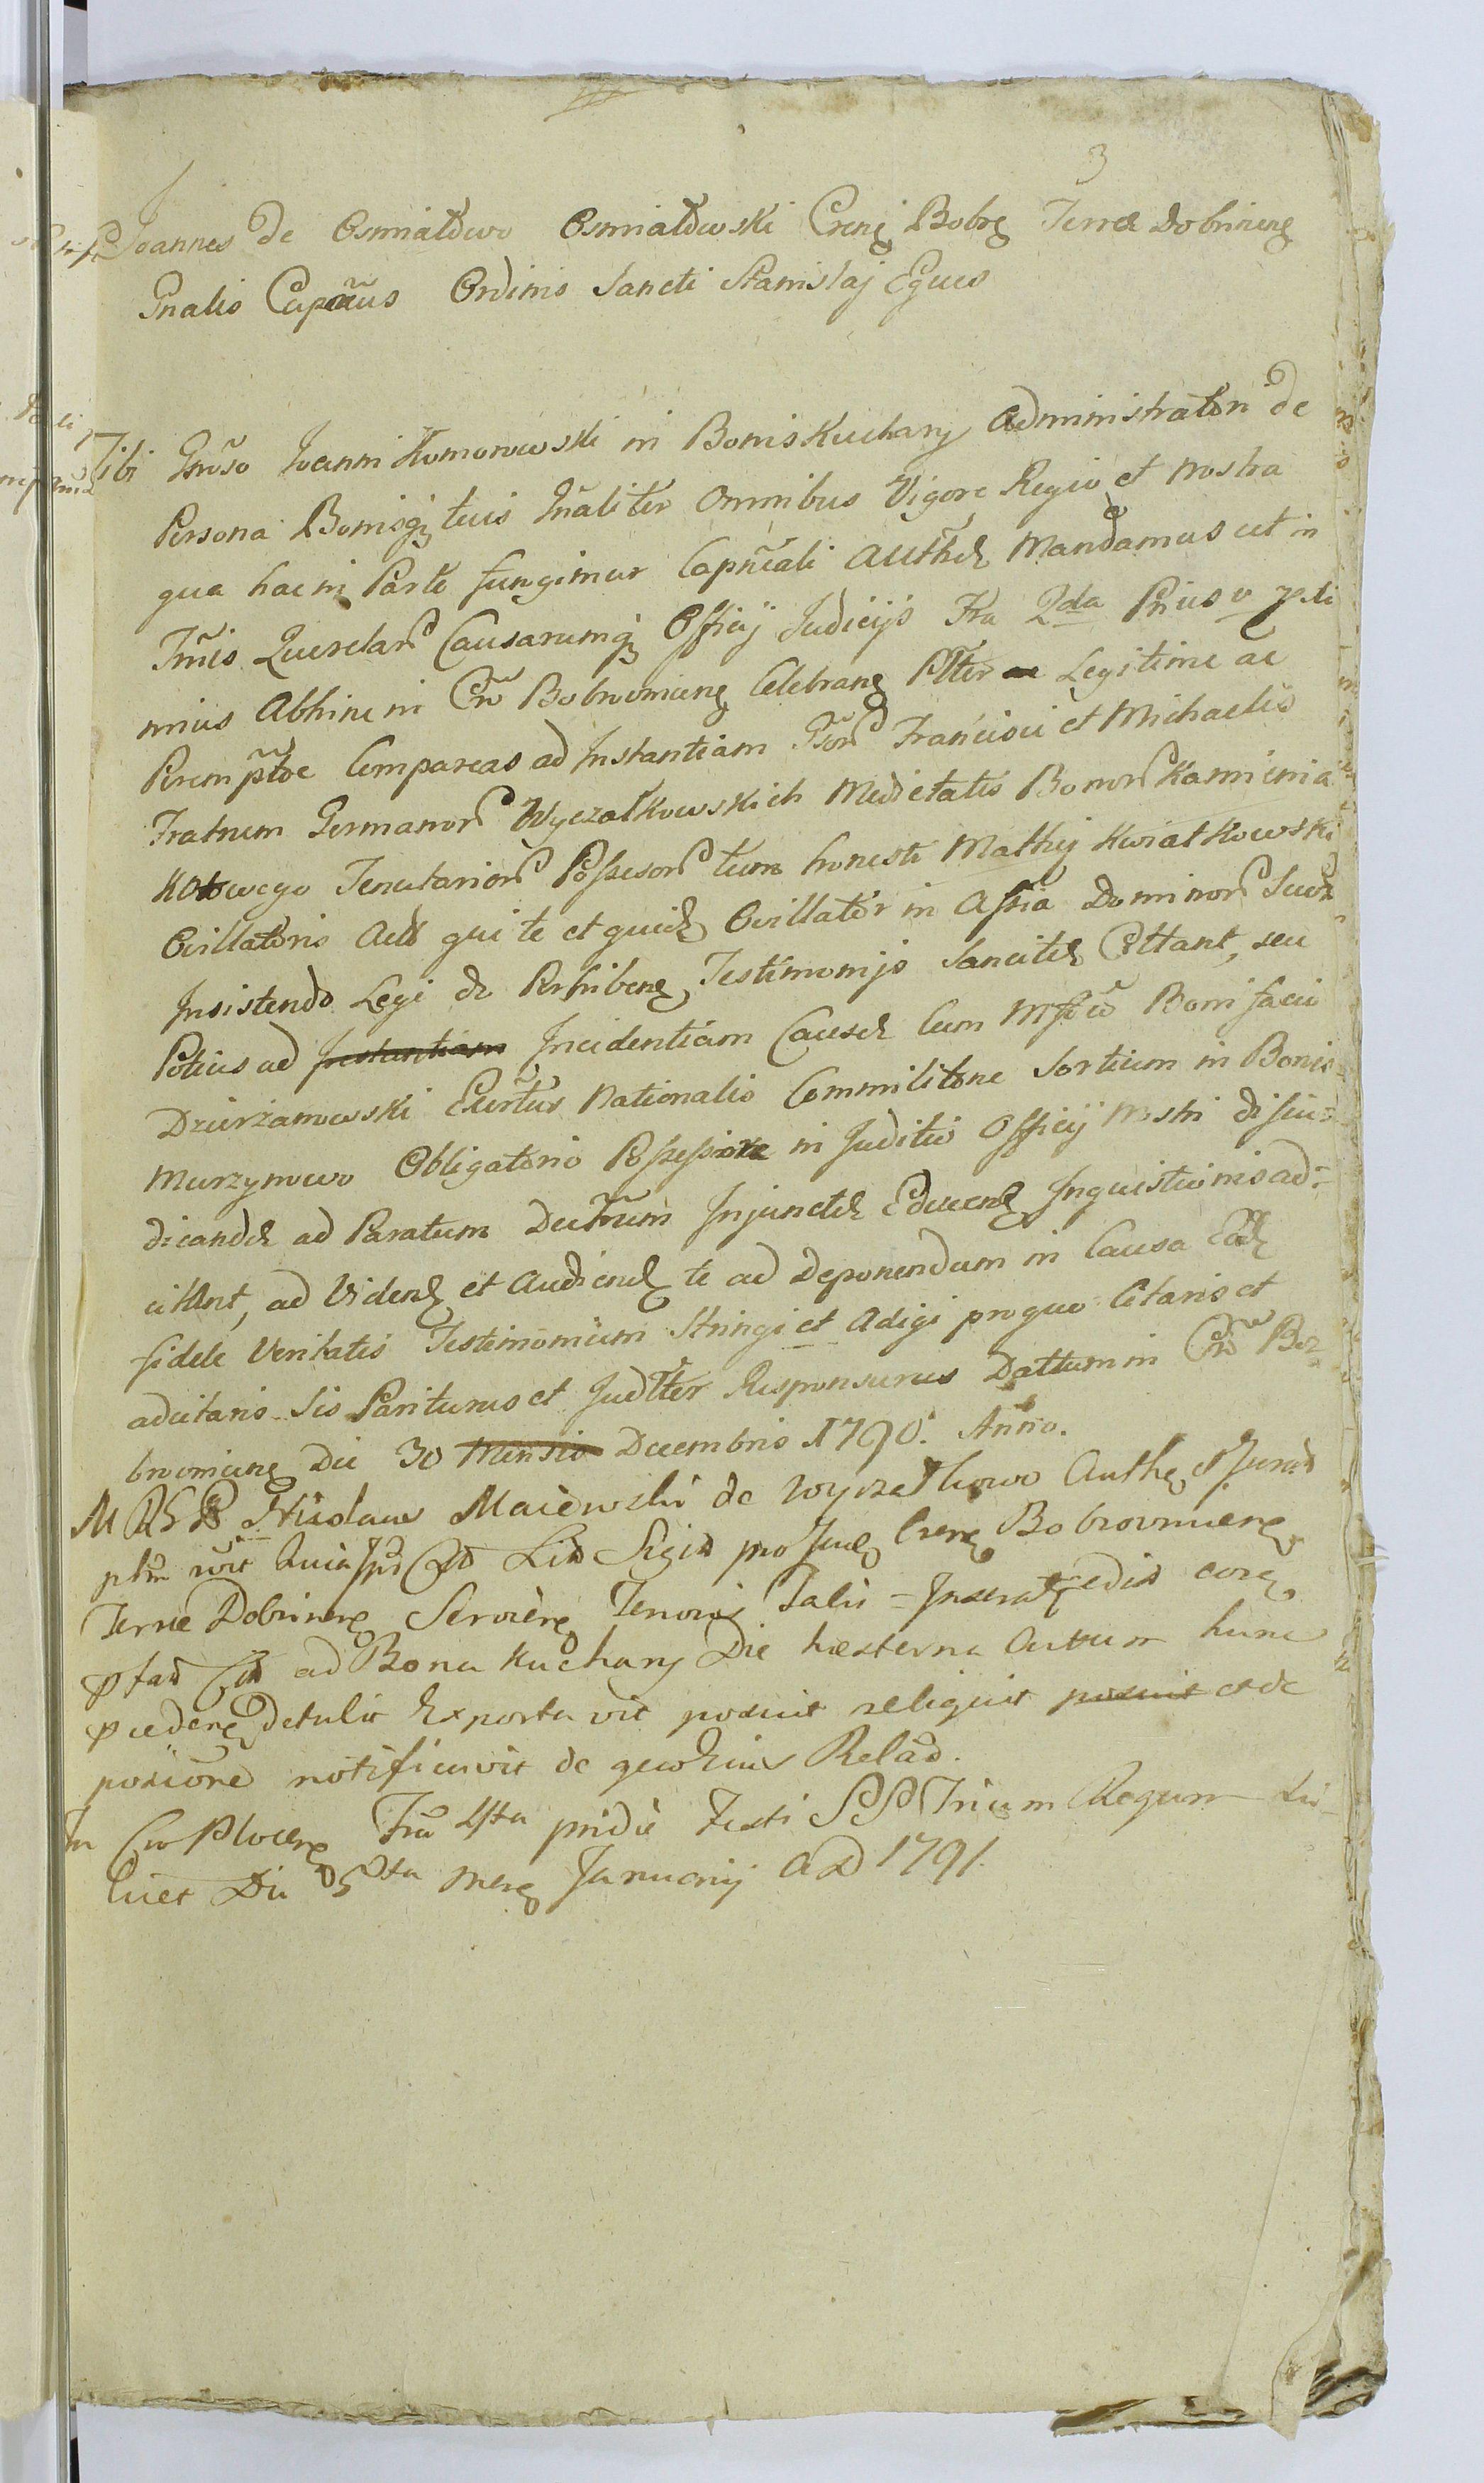 3
Joannes de Osmiałowo Osmiałowski Crenȩ Bobrȩ Terræ Dobrinenȩ
Gnalis Capnus Ordinis Sancti Stanislaj Eques
Tibi Gnoso Joanni Komorowski in Bonis Kuchary Administratori de
Persona Bonisqȝ tuis Gnaliter Omnibus Vigore Regio et Nostra
qua hac in Parte fungimur Capneali Auth Mandamus ut in
Tmis Querelar Causarumqȝ Officij Judicijs Fra 2da Prius v
mius Abhinc in Cro Bobrownicenȩ Celebranȩ Plter Legitime ac
Peremptoe Compareas ad Instantiam Gsor Francisci et Michaelis
Fratrum Germanor Wyczałkowskich Medietatis Bonor Kamienia
Kotowego Tenutarior Possesor tum honesti Mathij Kwiatkowski
Ovillatoris Act qui te et quidȩ Ovillator in Assia Dominor Suor
Insistendo Legi de Perhibenȩ Testimonijs Sancitæ Cittant, seu
Potius ad Instantiam Incidentiam Causæ Cum Mfco Bonifacio
Dzierżanowski Exertus Nationalis Commilitone Sortium in Bonis
Murzynowo Obligatorio Possessore in Juditio Officij Nostri dijiu=
dicandæ ad Paratum Decrum Injunctæ Educenȩ Inquisitionis ad=
citant, ad Videnȩ et Audienȩ te ad Deponendum in Causa Eadȩ
fidele Veritatis Testimonium Stringi et Adigi pro quo Citaris et
adcitaris Sis Pariturus et Judlter Responsurus Dattum in Cro Bo=
brownicenȩ Die 30 Mensis Decembris 1790. Anno.
M R S Nicolaus Maiewski de Wyczałkowo Authȩ et Jurat
ptm Quia Lit Sigit pro Crenȩ Bobrownicenȩ
Terræ Dobrinenȩ Servienȩ Tenoris Talis = Inserat
ptas Cit ad Bona Kuchary Die hesterna Actum hunc
pcedenȩ Detulit Exportavit posuit reliquit posuit et de
posione notificavit de quo Eius Relad.
In Cro Plocenȩ Fra 4ta pridie Festi SS Trium Regum Sci=
licet Die 5ta Mensȩ Januarij AD 1791.